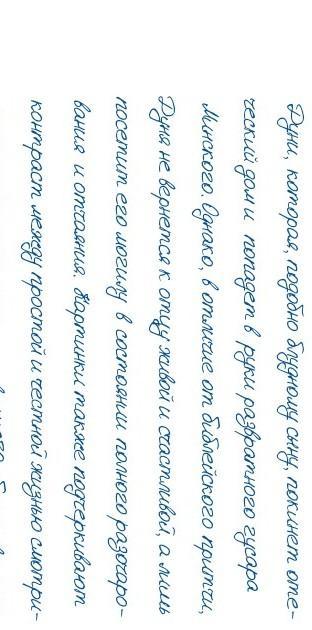 Дуни, которая, подобно блудному сыну, покинет оте-
ческий дом и попадет в руки развратного гусара
Минского. Однако, в отличие от библейского притчи,
Дуня не вернется к отцу живой и счастливой, а лишь
посетит его могилу в состоянии полного разочаро-
вания и отчаяния. Картинки также подчеркивают
контраст между простой и честной жизнью смотри-